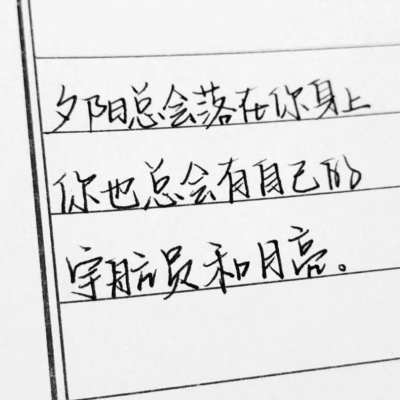 夕阳总会落在你身上
你也总会有自己的
宇航员和月亮。